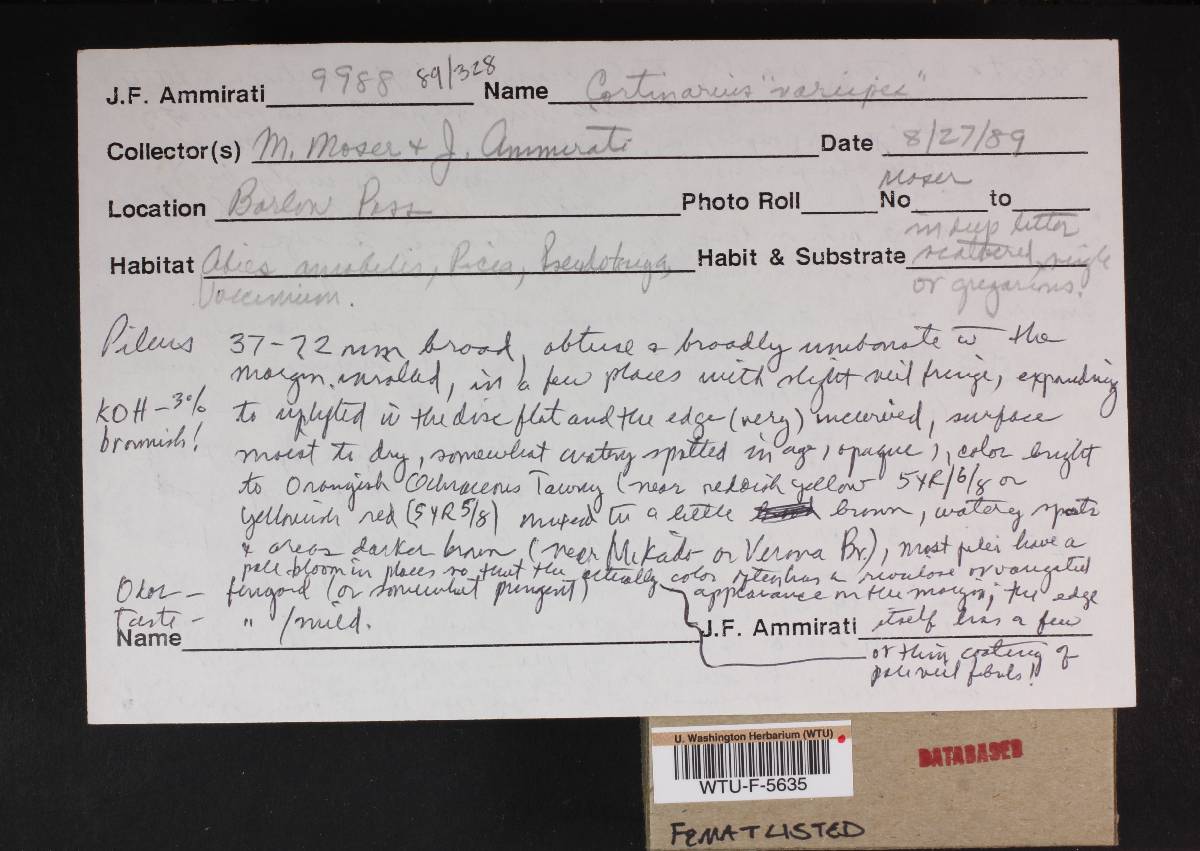 J.F. Ammirati 9988 89/328 Name Cortinarius "varipes"
Collector(s) M. Moser + J. Ammirati Date 8/27/89
Location Barlow Pass Photo Roll No Moser to
Habitat Abies amabilis, Picea, Pseudotsuga, Vaccinium.
Habit & Substrate in deep litter scattered, single or gregarious.
Pileus 37-72 mm broad, obtuse & broadly umbonate w the
margin inrolled, in a few places with slight veil fringe, expanding
KOH - 3% brownish!
to uplifted w the disc flat and the edge (very) incurved, surface
moist to dry, somewhat watery spotted in age, opaque, color bright
to Orangish Ochraceous Tawny (near reddish yellow 5YR/6/8 or
yellowish red (5YR 5/8) mixed w a little brown, watery spots
& areas darker brown (near Mikado or Verona Br.), most pilei have a
pale bloom in places so that the actually color often has a rivulose or variegated
appearance on the margin; the edge
itself has a few
or thin coating of
pale veil fibrils!
Odor - fungoid (or somewhat pungent)
Taste - " /mild.
Name J.F. Ammirati
U. Washington Herbarium (WTU)
WTU-F-5635
DATABASED
FEMAT LISTED